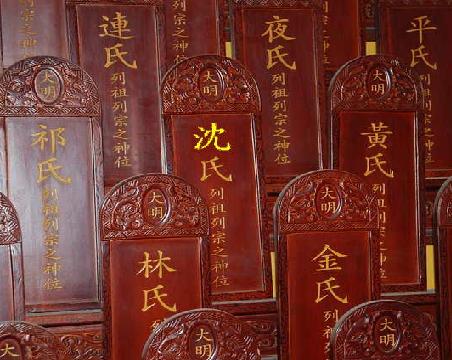 連氏列祖列宗之神位
夜氏列祖列宗之神位
平氏列祖列宗之神位
大明
祁氏列祖列宗之神位
大明
沈氏列祖列宗之神位
大明
黃氏列祖列宗之神位
大明
林氏列祖
大明
金氏列祖列
大
大明
大明